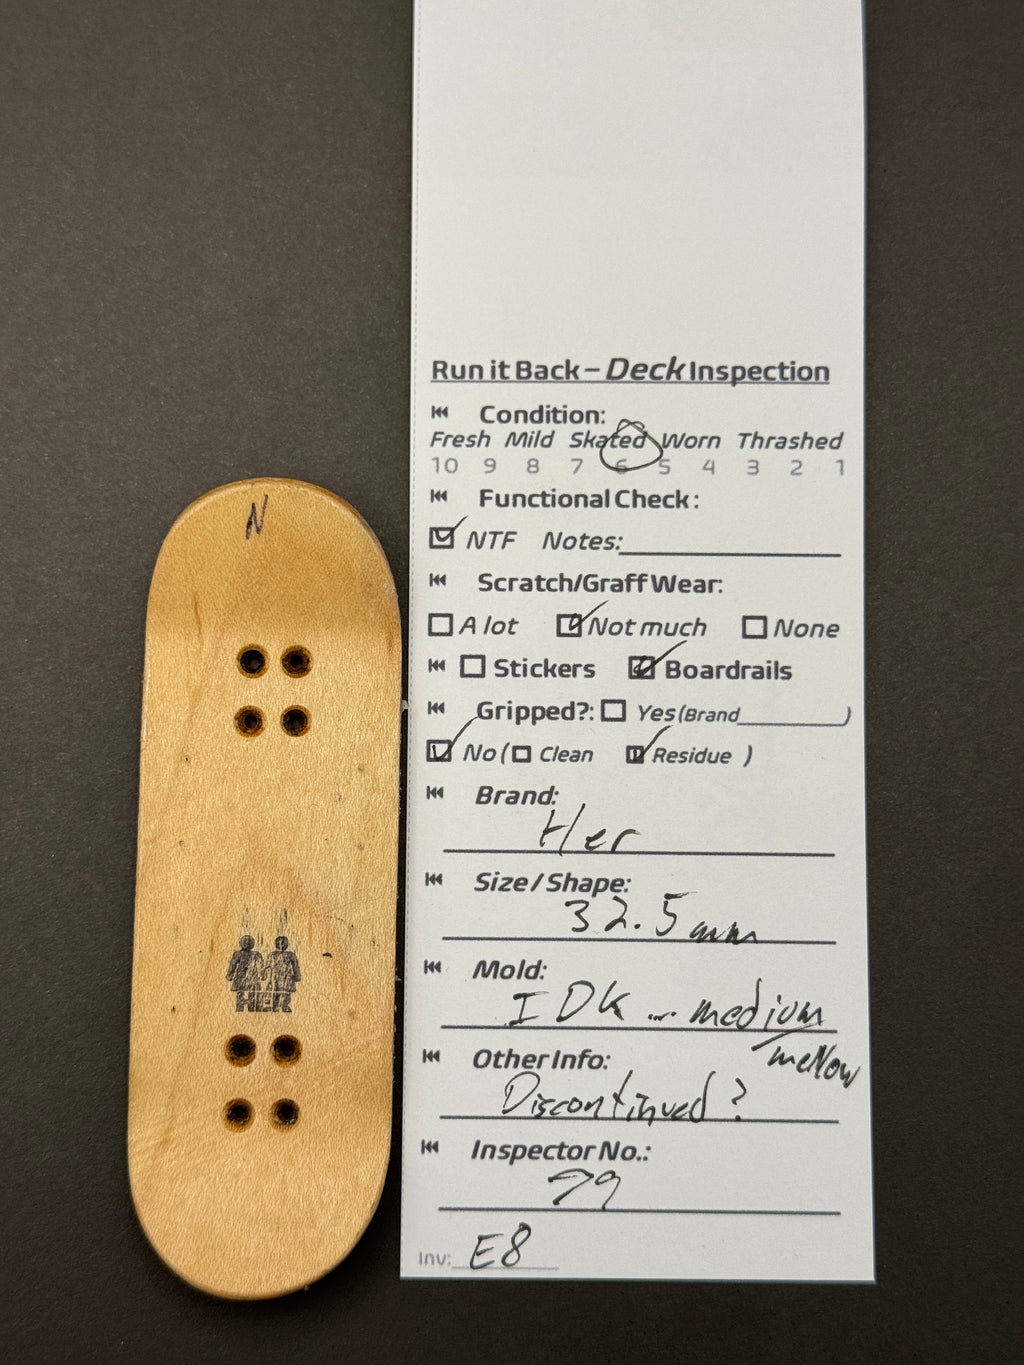 Run it Back – Deck Inspection
Condition:
Fresh Mild Skated Worn Thrashed
10 9 8 7 6 5 4 3 2 1
Functional Check:
NTF Notes:
Scratch/Graff Wear:
A lot Not much None
Stickers Boardrails
Gripped?: Yes (Brand )
No ( Clean Residue )
Brand:
Her
Size / Shape:
32.5mm
Mold:
IDK ... medium/
mellow
Other Info:
Discontinued?
Inspector No.:
79
Inv: E8
N
HER